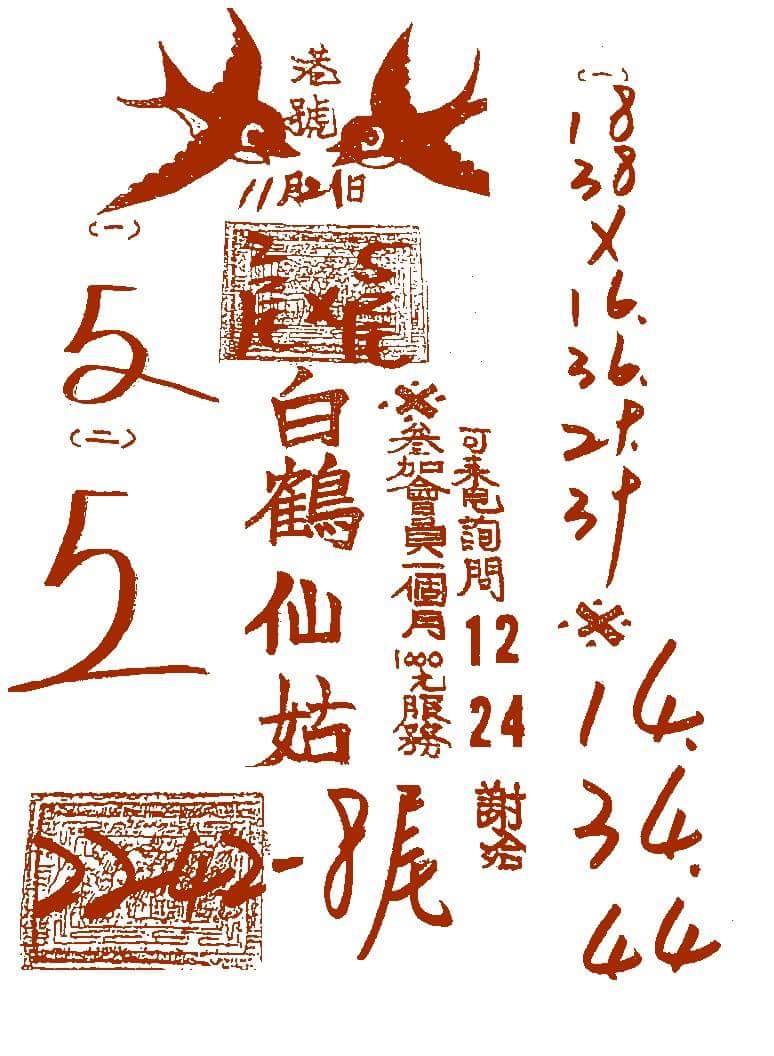 港號
11月21日
(一)
5
(二)
5
2尾×5尾
白鶴仙姑
※
參加會員一個月1000元服務
可來电詢問
12
24
謝
22-42-8尾
(一)
18
38
X
16.
36.
※
14.
34.
44